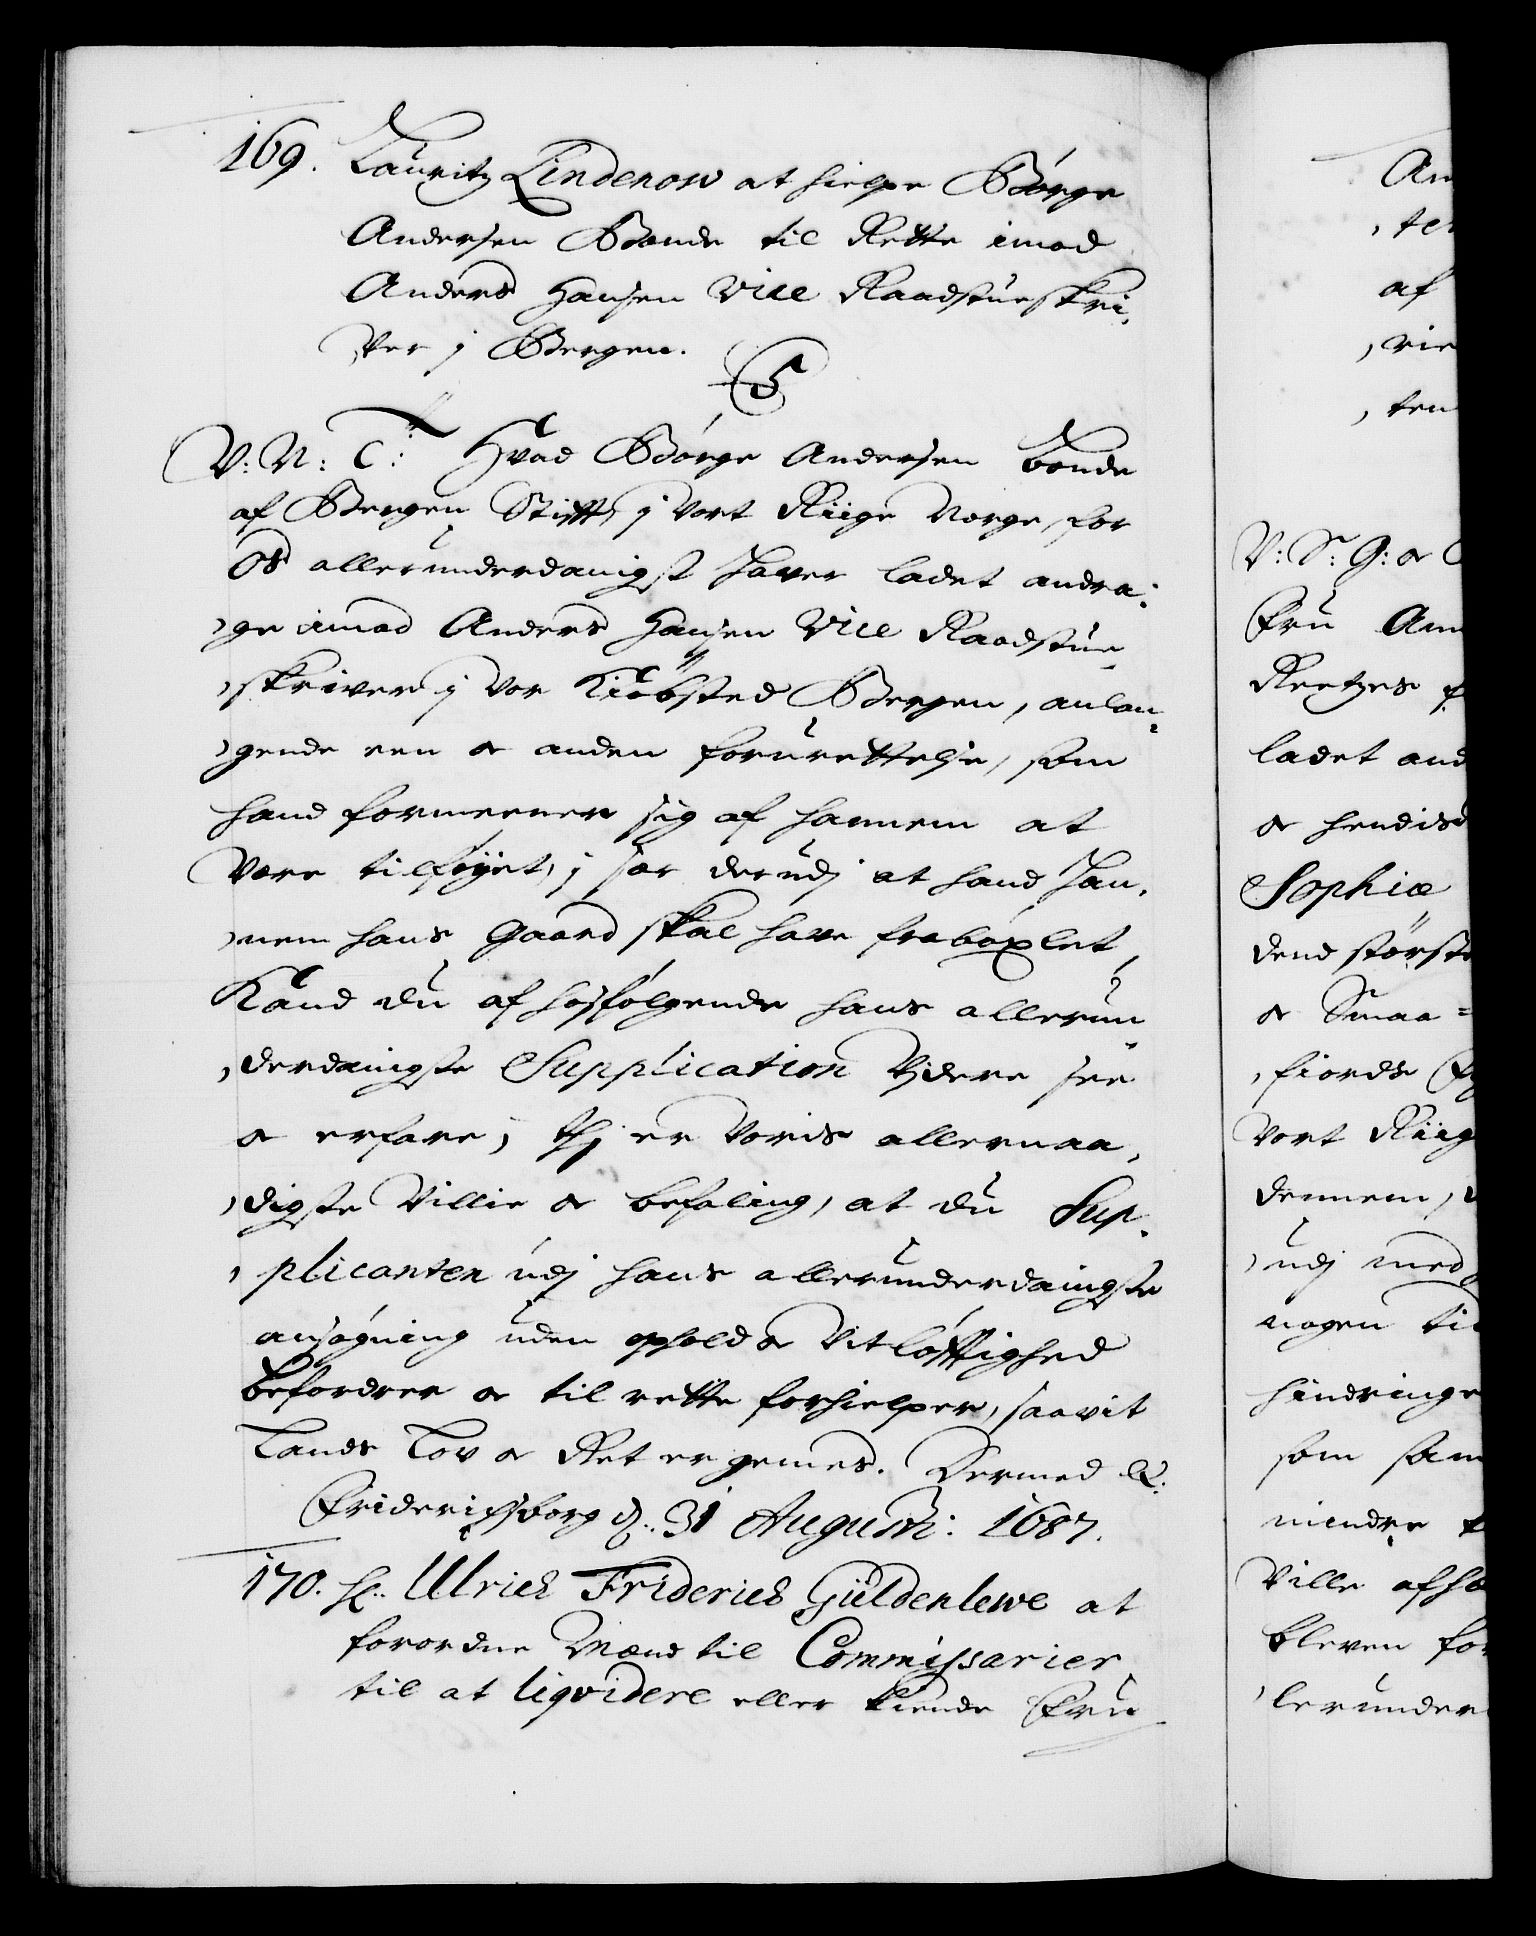 169. Lauritz Lindenow at hielpe Børge
Andersen Bonde til Rette imod
Anders Hansen Vice Raadstueskri,
,ver j Bergen.
C5
V: N: T: Hvad Børge Andersen bonde
af Bergen Stift, j vort Riige Norge, for
Os allerunderdanigst haver ladet andra,
,ge imod Anders Hansen Vice Raadstue,
,skriver j vor Kiøbsted Bergen, anlan,
,gende een oc anden forurettelse, som
hand formeener sig af hannem at
være tilføyet, j sær derudj at hand han,
,nem hans Gaard skal have frabøxlet,
Kand du af hosfølgende hans allerun,
,derdanigste Supplication Vjdere see
oc erfare; thj er Voris allernaa,
,digste Villie oc befaling, at du Sup,
,plicanten udj hans allerunderdanigste
ansøgning uden ophold oc Vitløftighed
befordrer oc til rette forhielper, saavit
Lands Lov oc Ret er gemes. Dermed &:
Friderichsborg d: 31 Augusti: 1687.
170. H: Ulrich Friderich Güldenlewe at
forordne Mænd til Commissarier
til at liqvidere eller kiende Fru
An
,ter
af
,rie
,ten
V: S: G: oc
Fru Ann
Reetzes
ladet and
oc hendis
Sophiæ
dend største
oc Smaa=
,fiords
Vort Riig
dennem,
,udj med
nogen til
hindringe
som sam
mindre
Ville afhæ
bleven for
,lerunder